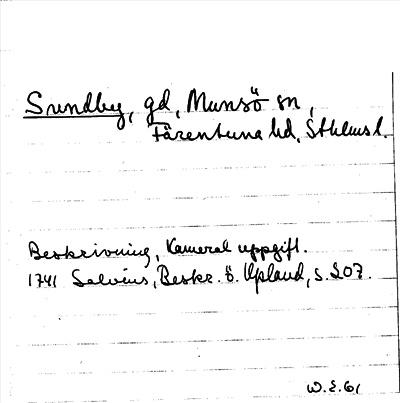 Sundby, gd, Munsö sn,
Färentuna hd, Sthlms l.
Beskrivning, Kameral uppgift.
1741 Salvius, Beskr. ö. Upland, s. 207.
W.E.61